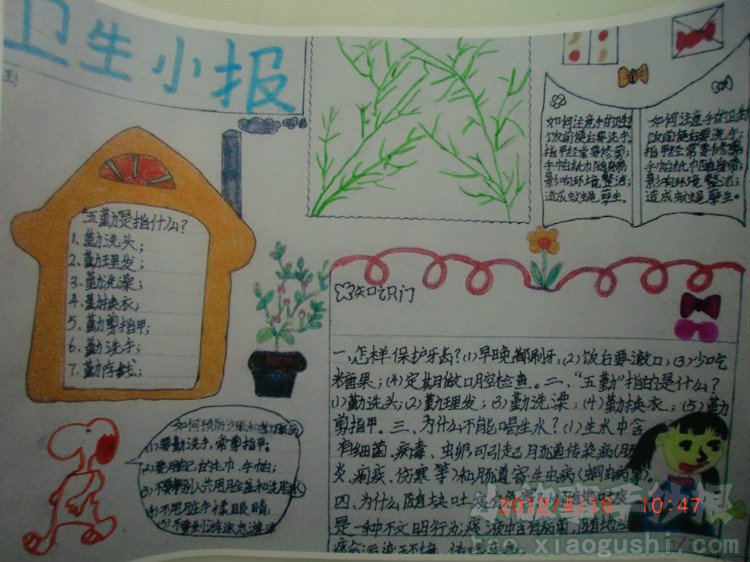 卫生小报
"五勤"是指什么?
1、勤洗头;
2、勤理发;
3、勤洗澡;
4、勤换衣;
5、勤剪指甲;
6、勤洗手;
7、勤
如何注意手的卫生
饭前便后要洗手,
指甲经常要修剪;
手帕纸巾随身带,
影响环境整洁;
造成蚊蝇孳生。
如何注意手的卫生
饭前便后要洗手,
指甲经常要修剪;
手帕纸巾随身带
影响环境整洁;
造成蚊蝇孳生。
知识门
一、怎样保护牙齿?(1)早晚都刷牙;(2)饭后要漱口;(3)少吃
糖果;(4)定期做口腔检查。二、"五勤"指的是什么?
(1)勤洗头;(2)勤理发;(3)勤洗澡;(4)勤换衣;(5)勤
剪指甲。三、为什么不能喝生水?(1)生水中含
有细菌、病毒、虫卵,可引起肠道传染病(肝
炎、痢疾、伤寒等)和肠道寄生虫病(蛔虫病等)
四、为什么随块吐
是一种不文明行为;痰液中含有病菌,随地
如何预防沙眼
(1)要勤洗手、常剪指甲。
(2)要用自己的毛巾、手帕;
(3)不要和别人共用脸盆和洗脸水
(4)不用脏手揉眼睛;
2012/4/16 10:47
xiaogushi.com